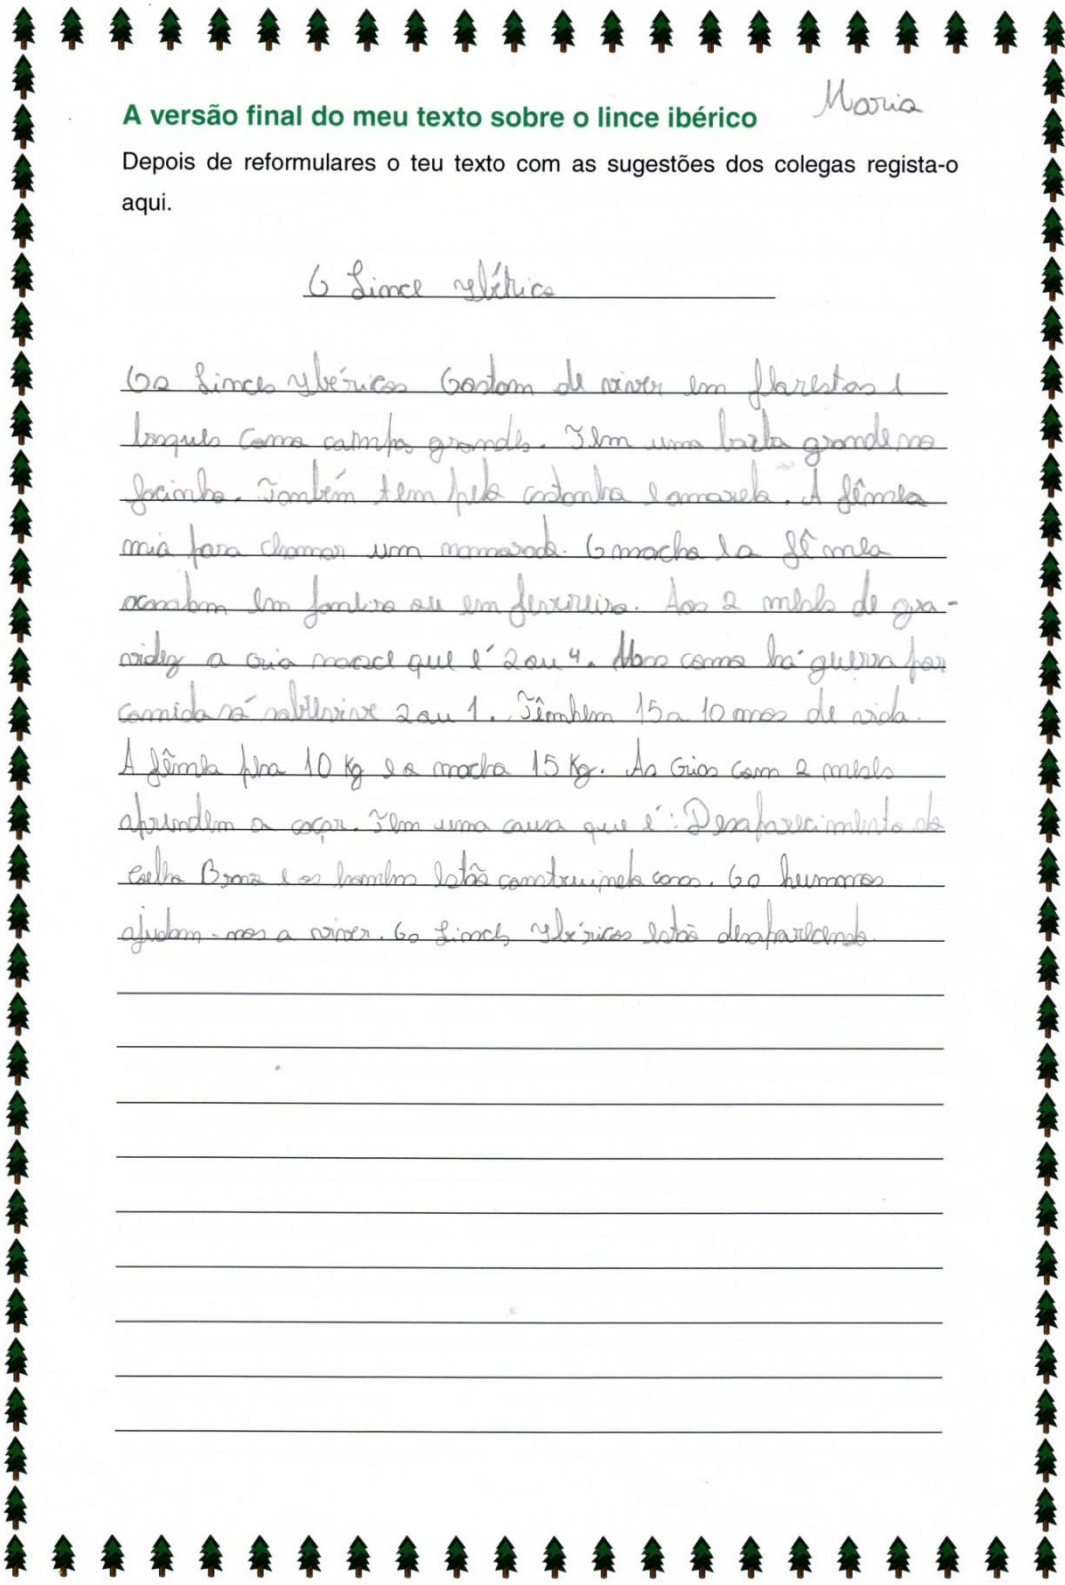 A versão final do meu texto sobre o lince ibérico
Maria
Depois de reformulares o teu texto com as sugestões dos colegas regista-o
aqui.
O Lince Ibérico
Os Linces Ibéricos Gostam de viver em florestas e
bosques como campos grandes. Têm uma barba grande no
focinho. Também tem pelo castanho e amarelo. A fêmea
mia para chamar um namorado. O macho e a fêmea
acasalam em Janeiro ou em fevereiro. Aos 2 meses de gra-
videz a cria nasce que é 2 ou 4. Mas como há guerra por
comida só sobrevive 2 ou 1. 15 a 10 anos de vida.
A fêmea pesa 10 Kg e o macho 15 Kg. As Crias com 2 meses
aprendem a caçar. Tem uma causa que é: Desaparecimento do
Coelho Bravo e os homens estão construindo casas. Os humanos
ajudam-nos a viver. Os Linces Ibéricos estão desaparecendo.